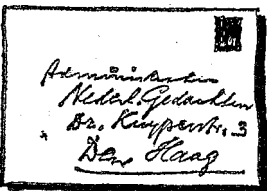 Administratie
Nederl. Gedachten
Dr. Kuyperstr. 3
Den Haag